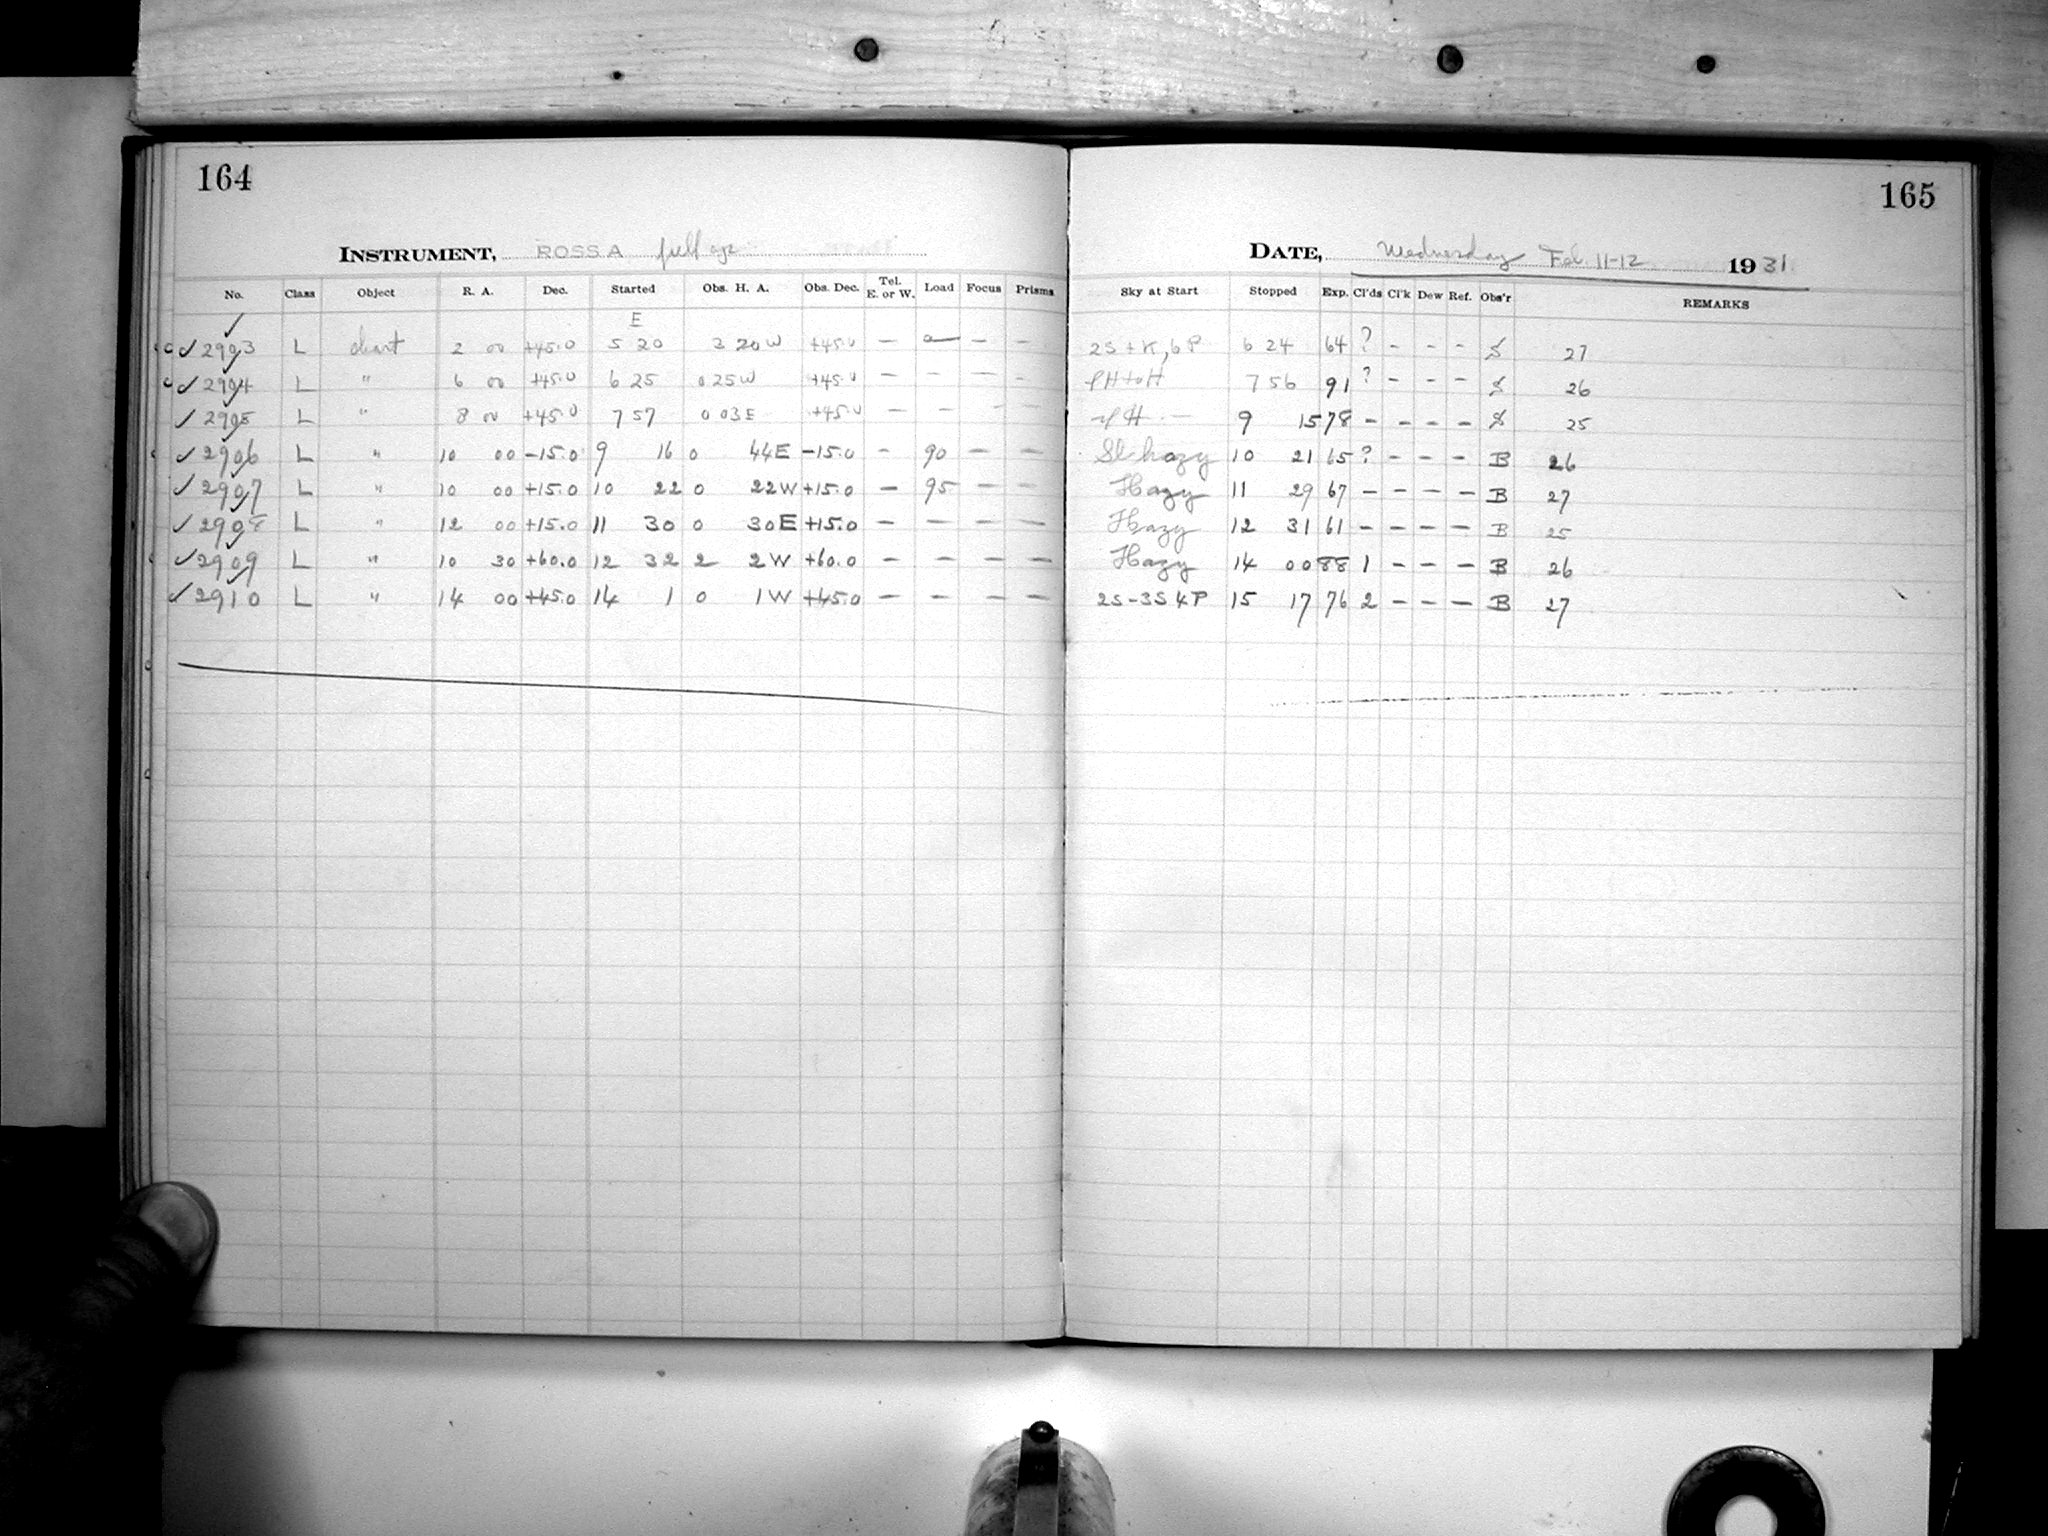 164
INSTRUMENT, ROSS A full ap.
No. Class Object R. A. Dec. Started Obs. H. A. Obs. Dec. Tel. E. or W. Load Focus Prisms
E
✓ 2903 L chart 2 00 +45.0 5 20 3 20 W +45.0 — — — —
✓ 2904 L " 6 00 +45.0 6 25 0 25 W +45.0 — — — -
✓ 2905 L " 8 00 +45.0 7 57 0 03 E +45.0 — — - —
✓ 2906 L " 10 00 -15.0 9 16 0 44 E -15.0 - 90 — —
✓ 2907 L " 10 00 +15.0 10 22 0 22 W +15.0 — 95 — —
✓ 2908 L " 12 00 +15.0 11 30 0 30 E +15.0 — — — —
✓ 2909 L " 10 30 +60.0 12 32 2 2 W +60.0 — — — —
✓ 2910 L " 14 00 +45.0 14 1 0 1 W +45.0 — — — —
165
DATE, Wednesday Feb. 11-12 1931
Sky at Start Stopped Exp. Cl'ds Cl'k Dew Ref. Obs'r REMARKS
2S+K, 6P 6 24 64 ? - - - S 27
PH to H 7 56 91 ? - - - S 26
H 9 15 78 - - - - S 25
Sl. hazy 10 21 65 ? - - - B 26
Hazy 11 29 67 - - - - B 27
Hazy 12 31 61 - - - - B 25
Hazy 14 00 88 1 - - - B 26
2S-3S 4P 15 17 76 2 - - - B 27